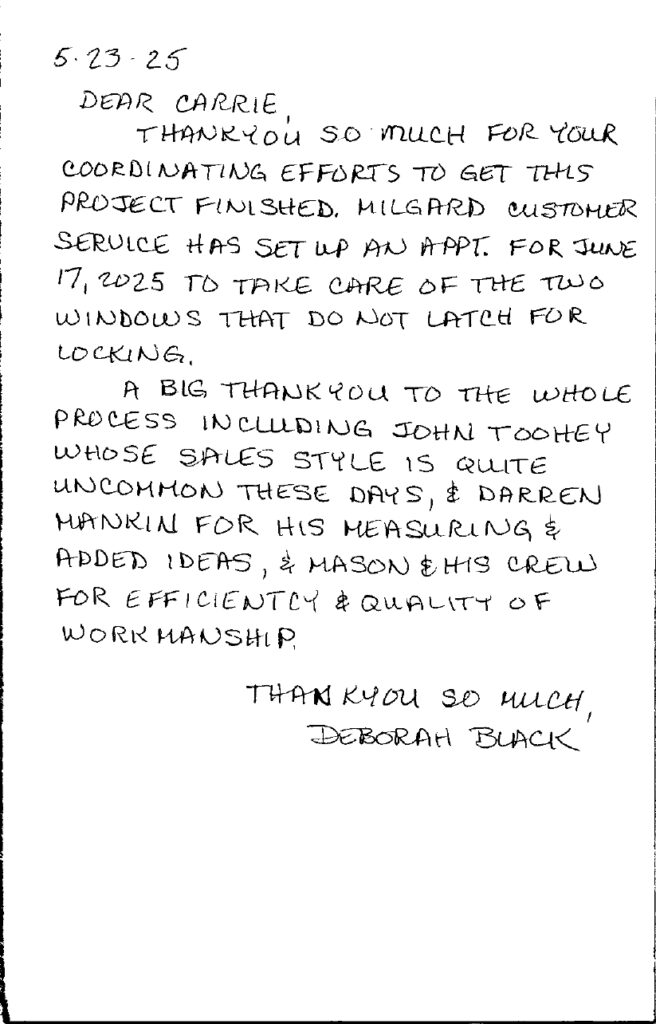 5·23·25
DEAR CARRIE,
THANKYOU SO MUCH FOR YOUR
COORDINATING EFFORTS TO GET THIS
PROJECT FINISHED. MILGARD CUSTOMER
SERVICE HAS SET UP AN APPT. FOR JUNE
17, 2025 TO TAKE CARE OF THE TWO
WINDOWS THAT DO NOT LATCH FOR
LOCKING.
A BIG THANKYOU TO THE WHOLE
PROCESS INCLUDING JOHN TOOHEY
WHOSE SALES STYLE IS QUITE
UNCOMMON THESE DAYS, & DARREN
MANKIN FOR HIS MEASURING &
ADDED IDEAS, & MASON & HIS CREW
FOR EFFICIENTCY & QUALITY OF
WORKMANSHIP.
THANKYOU SO MUCH,
DEBORAH BLACK